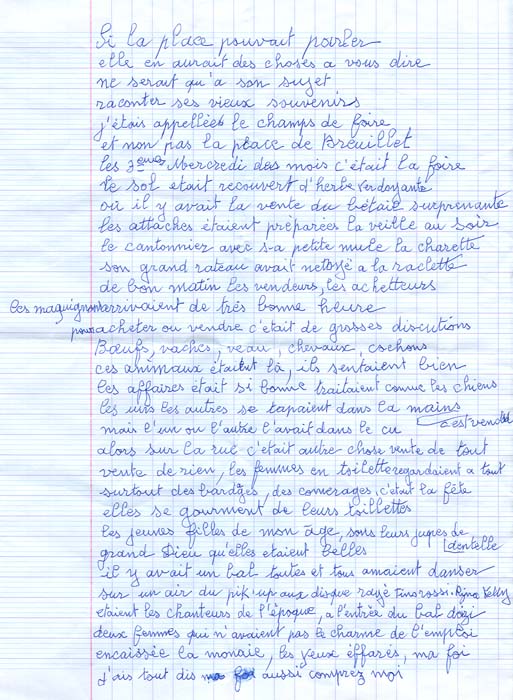 Si la place pouvait parler
elle en aurait des choses a vous dire
ne serait qu'a son sujet
raconter ses vieux souvenirs
j'étois appelleés le champs de foire
et non pas la place de Breuillet
les 3emes Mercredi des mois c'était la foire
le sol etait recouvert d'herbe verdoyante
où il y avait la vente du bétaie surprenante
les attaches étaient préparées la veille au soir
le cantonnier avec sa petite mule la charette
son grand rateau avait nettoyé a la raclette
de bon matin les vendeurs, les achetteurs
les maquignons arrivaient de trés bonne heure
pour acheter ou vendre c'était de grosses discutions
Bœufs, vaches, veau, chevaux, cochons
ces animaux étaient là, ils sentaient bien
les affaires était si bonne traitaient comme les chiens
les uns les autres se tapaient dans la mains
mais l'un ou l'autre l'avait dans le cu c'est vendu
alors sur la rue c'était autre chose vente de tout
vente de rien, les femmes en toilette regardaient a tout
surtout des bardges, des comerages, c'était la fête
elles se gourment de leurs toillettes
les jeunes filles de mon âge, sous leurs jupes de dentelle
grand Dieu qu'elles etaient belles
il y avait un bal toutes et tous amaient danser
sur un air du pik-up aux disque rayé Tino rossi. Rina Kelly
étaient les chanteurs de l'époque, a l'entrée du bal
deux femmes qui n'avaient pas le charme de l'emploi
encaissée la monaie, les yeux effarés, ma foi
j'ais tout dis aussi comprez moi